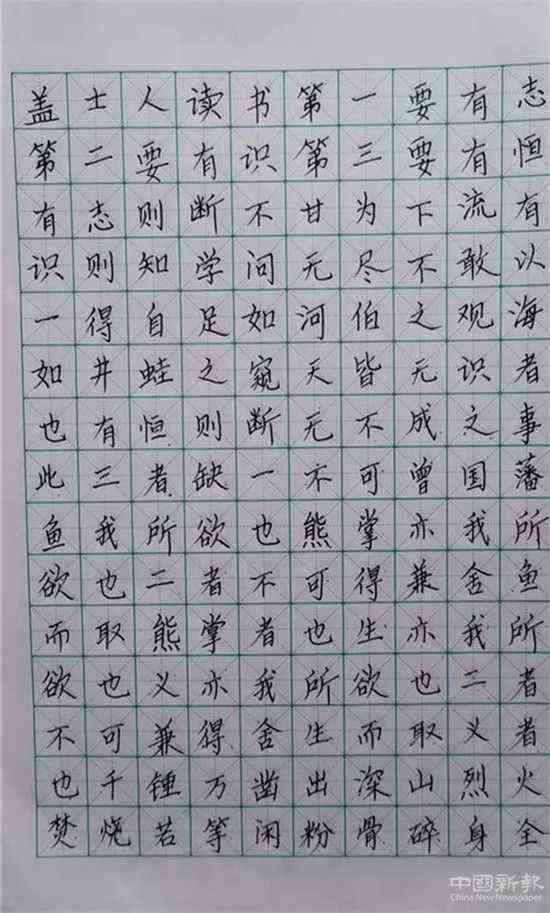 盖士人读书第一要有志
第二要有识第三要有恒
有志则断不甘为下流有
识则知学问无尽不敢以
一得自足如河伯之观海
如井蛙之窥天皆无识者
也有恒则断无不成之事
此三者缺一不可曾国藩
鱼我所欲也熊掌亦我所
欲也二者不可得兼舍鱼
而取熊掌者也生亦我所
欲也义亦我所欲也二者
不可兼得舍生而取义者
也千锤万凿出深山烈火
焚烧若等闲粉骨碎身全
中國新報
China New Newspaper